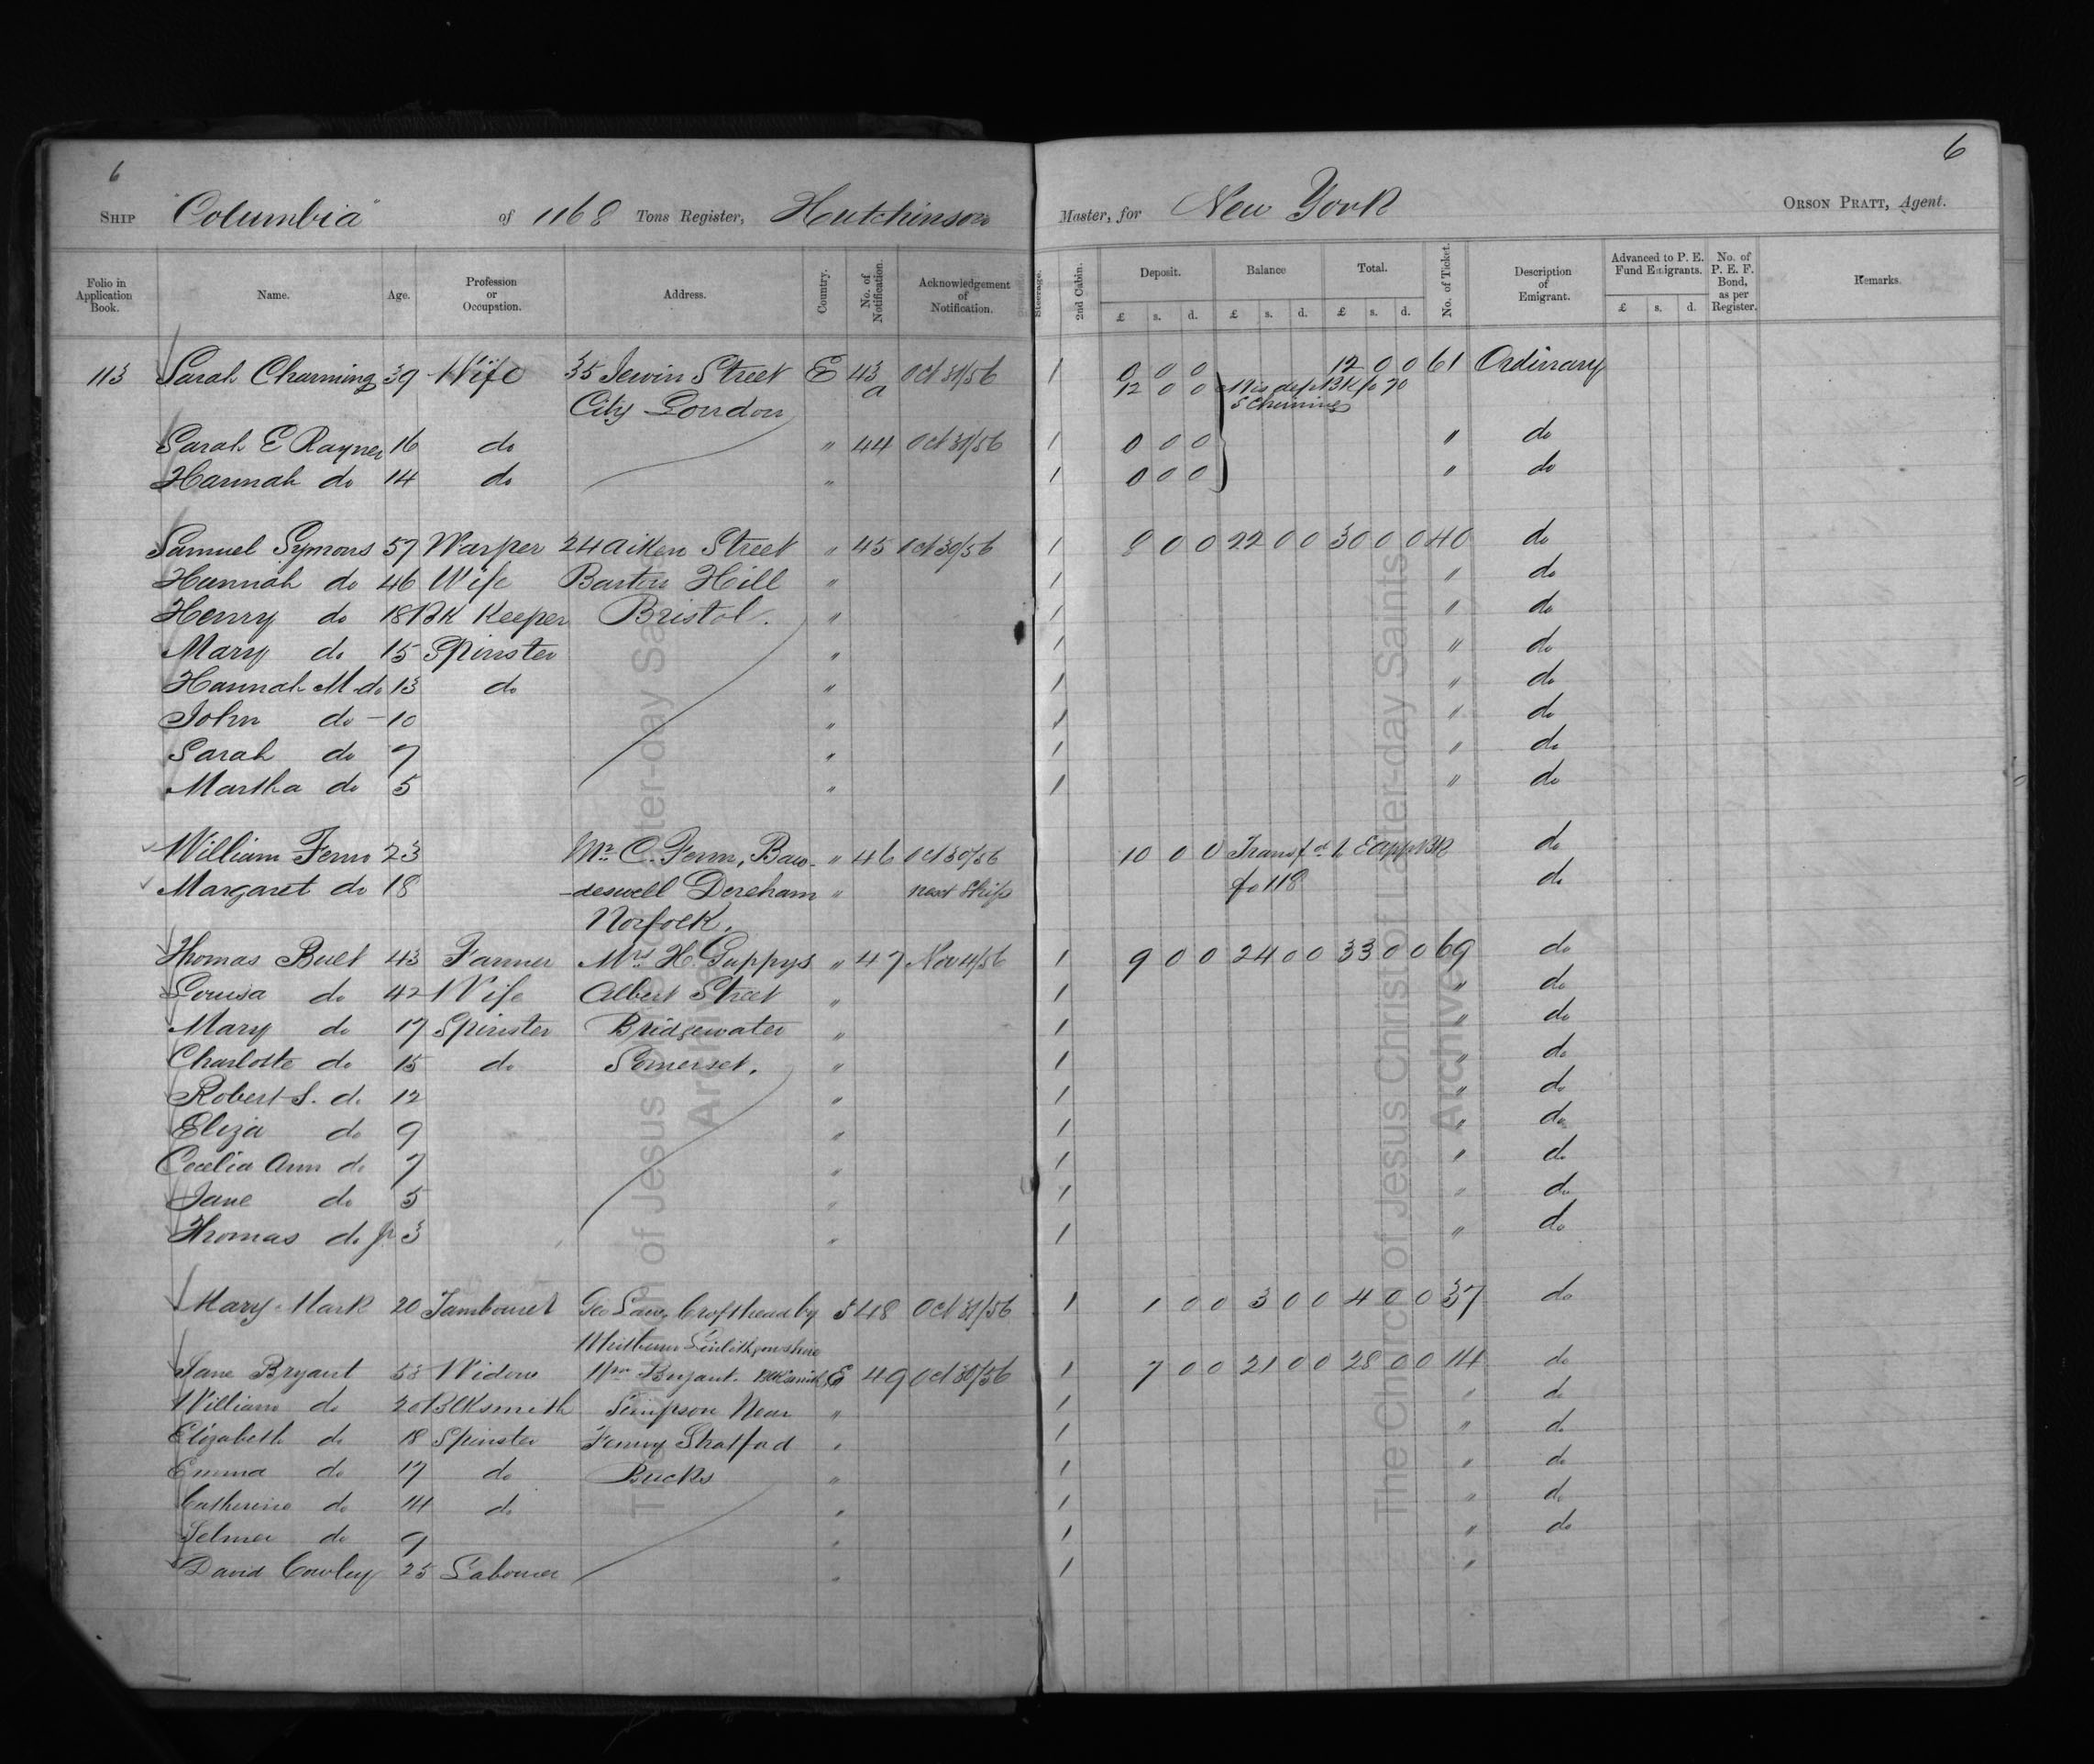 6
6
SHIP "Columbia" of 1168 Tons Register, Hutchinson Master, for New York ORSON PRATT, Agent.
Folio in Application Book. Name. Age. Profession or Occupation. Address. Country. No. of Notification. Acknowledgement of Notification. Steerage. 2nd Cabin. Deposit. Balance Total. No. of Ticket. Description of Emigrant. Advanced to P. E. Fund Emigrants. No. of P. E. F. Bond, as per Register. Remarks.
£ s. d. £ s. d. £ s. d. £ s. d.
113 Sarah Channing 39 Wife 35 Jewin Street E 43 Oct 31/56 1 0 0 0 12 0 0 61 Ordinary
City London a 12 0 0
Sarah E Rayner 16 do " 44 Oct 31/56 1 0 0 0 " do
Hannah do 14 do " 1 0 0 0 " do
Samuel Symons 57 Warper 24 Aiken Street " 45 Oct 30/56 1 8 0 0 22 0 0 30 0 0 40 do
Hannah do 46 Wife Barton Hill " 1 " do
Henry do 18 Bk Keeper Bristol. " 1 " do
Mary do 15 Spinster " 1 " do
Hannah M do 13 do " 1 " do
John do 10 " 1 " do
Sarah do 7 " 1 " do
Martha do 5 " 1 " do
William Fenn 23 Mr. C. Fenn, Baw- " 46 Oct 30/56 10 0 0 Transfd to E app BK do
Margaret do 18 deswell Dereham " next Ship fo 118 do
Norfolk.
Thomas Bult 43 Farmer Mrs H. Guppys " 47 Nov 4/56 1 9 0 0 24 0 0 33 0 0 69 do
Louisa do 42 Wife Albert Street " 1 " do
Mary do 17 Spinster Bridgewater " 1 " do
Charlotte do 15 do Somerset. " 1 " do
Robert S. do 12 " 1 " do
Eliza do 9 " 1 " do
Cecelia Ann do 7 " 1 " do
Jane do 5 " 1 " do
Thomas do Jr 3 " 1 " do
Mary Mark 20 Tambourer Geo Law, Crofthead by S 48 Oct 31/56 1 1 0 0 3 0 0 4 0 0 37 do
Whitburn Linlithgowshire
Jane Bryant 53 Widow Wm Bryant. Blksmith E 49 Oct 30/56 1 7 0 0 21 0 0 28 0 0 14 do
William do 20 Blksmith Simpson Near " 1 " do
Elizabeth do 18 Spinster Fenny Stratford " 1 " do
Emma do 17 do Bucks " 1 " do
Catherine do 14 do " 1 " do
Selmer do 9 " 1 " do
David Cowley 25 Labourer " 1 "
The Church of Jesus Christ of Latter-day Saints
Archives
The Church of Jesus Christ of Latter-day Saints
Archives